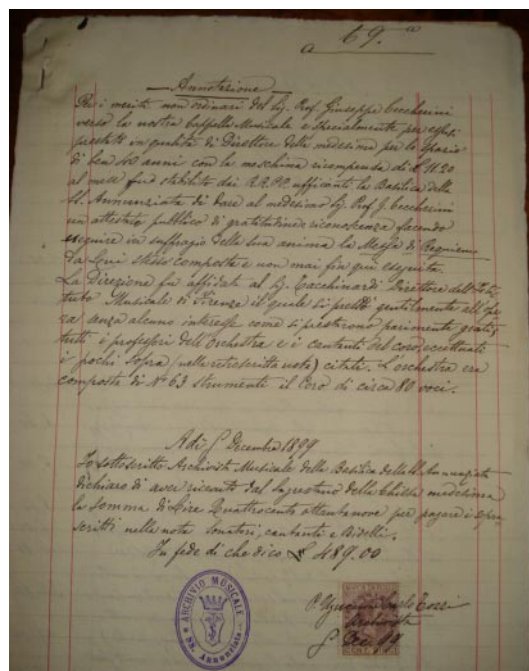 a 69.
Annotazione
Per i meriti non ordinari del Sig. Prof. Giuseppe Ceccherini
verso la nostra Cappella Musicale e specialmente per essersi
prestato in qualità di Direttore della medesima per lo spazio
di ben anni con la meschina ricompensa di £ 11.20
al mese fu stabilito dai R.R. PP. ufficianti la Basilica della
SS. Annunziata di dare al medesimo Sig. Prof. G. Ceccherini
un attestato pubblico di gratitudine e riconoscenza facendo
eseguire in suffragio della sua anima la Messa di Requiem
da Lui stesso composta e non mai fin qui eseguita.
La Direzione fu affidata al Sig. Tacchinardi Direttore dell'Isti-
tuto Musicale di Firenze il quale si prestò gentilmente all'ope-
ra senza alcuno interesse come si prestarono parimente gratis
tutti i professori dell'Orchestra e i cantanti del coro, eccettuati
i pochi sopra (nella retroscritta nota) citati. L'orchestra era
composta di N° 63 strumenti il Coro di circa 80 voci.
A dì 5 Decembre 1899
Io sottoscritto Archivista Musicale della Basilica della SS. Annunziata
dichiaro di aver ricevuto dal Sagrestano della Chiesa medesima
la somma di Lire Quattrocento ottantanove per pagare i sopra
scritti nella nota Sonatori, cantanti e Bidelli.
In fede di che dico £ 489.00
ARCHIVIO MUSICALE
SS. Annunziata
Carlo
Archivista
5 Dec. 99